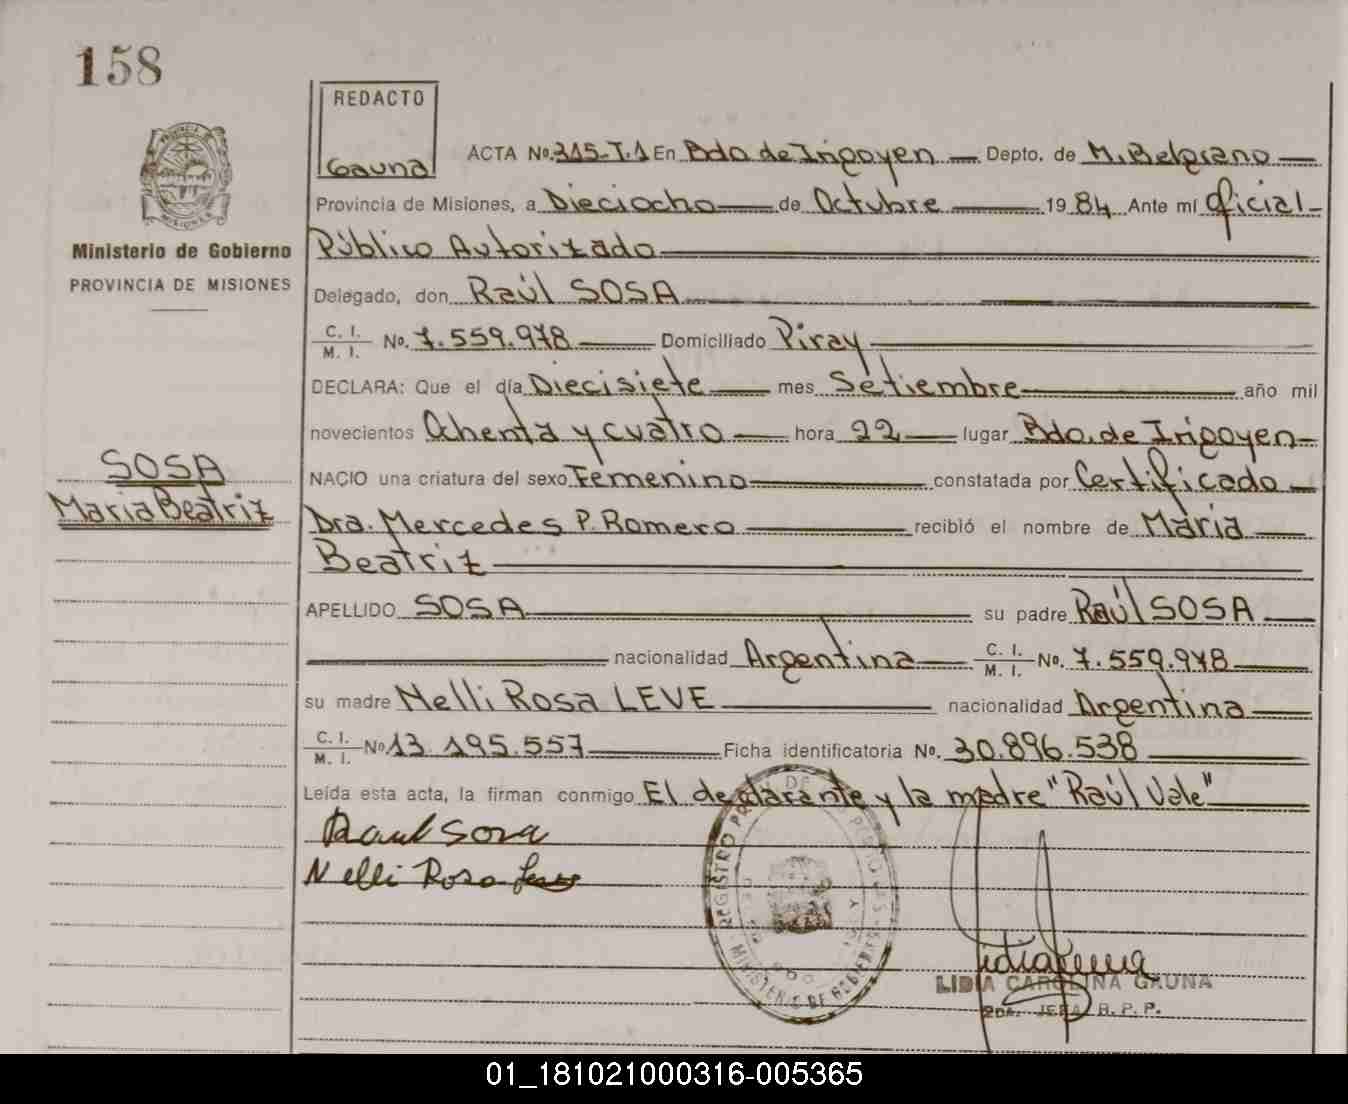 158
REDACTO
Gauna
ACTA No. 315-T.1 En Bdo de Irigoyen Depto. de M. Belgrano
Provincia de Misiones, a Dieciocho de Octubre 1984 Ante mí Oficial
Público Autorizado
Delegado, don Raúl SOSA
C. I.
M. I. No. 7.559.978 Domiciliado Piray
DECLARA: Que el día Diecisiete mes Setiembre año mil
novecientos Ochenta y cuatro hora 22 lugar Bdo. de Irigoyen
NACIO una criatura del sexo Femenino constatada por Certificado
Dra. Mercedes P. Romero recibió el nombre de María
Beatriz
APELLIDO SOSA su padre Raúl SOSA
nacionalidad Argentina C. I. M. I. No. 7.559.978
su madre Nelli Rosa LEVE nacionalidad Argentina
C. I.
M. I. No 13.195.557 Ficha identificatoria No. 30.896.538
Leída esta acta, la firman conmigo El declarante y la madre "Raúl Vale"
Raul Sosa
Nelli Rosa
Ministerio de Gobierno
PROVINCIA DE MISIONES
SOSA
María Beatriz
REGISTRO
MINISTERIO DE GOBIERNO
LIDIA CAROLINA GAUNA
2DA. JEFA R. P. P.
01_181021000316-005365